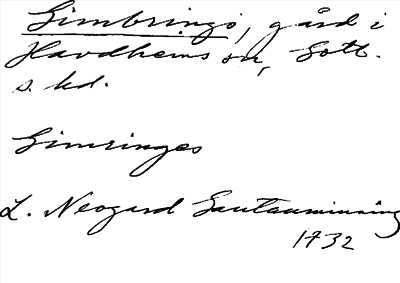 Simbrings, gård i
Havdhems sn, Gotl.
s. hd.
Simringes
L. Neogard Gautauminning
1732